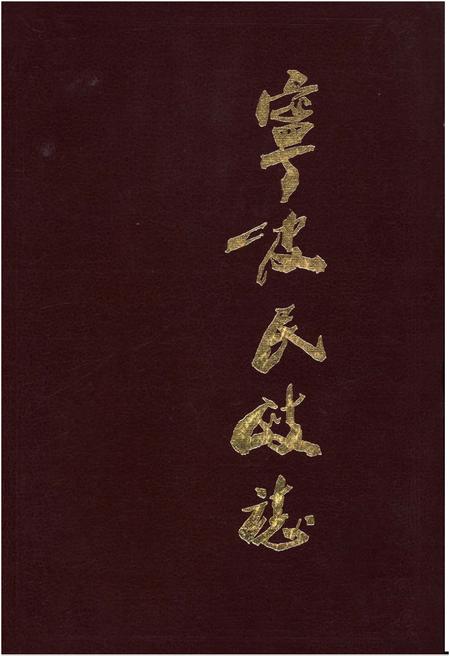 寧波民政誌